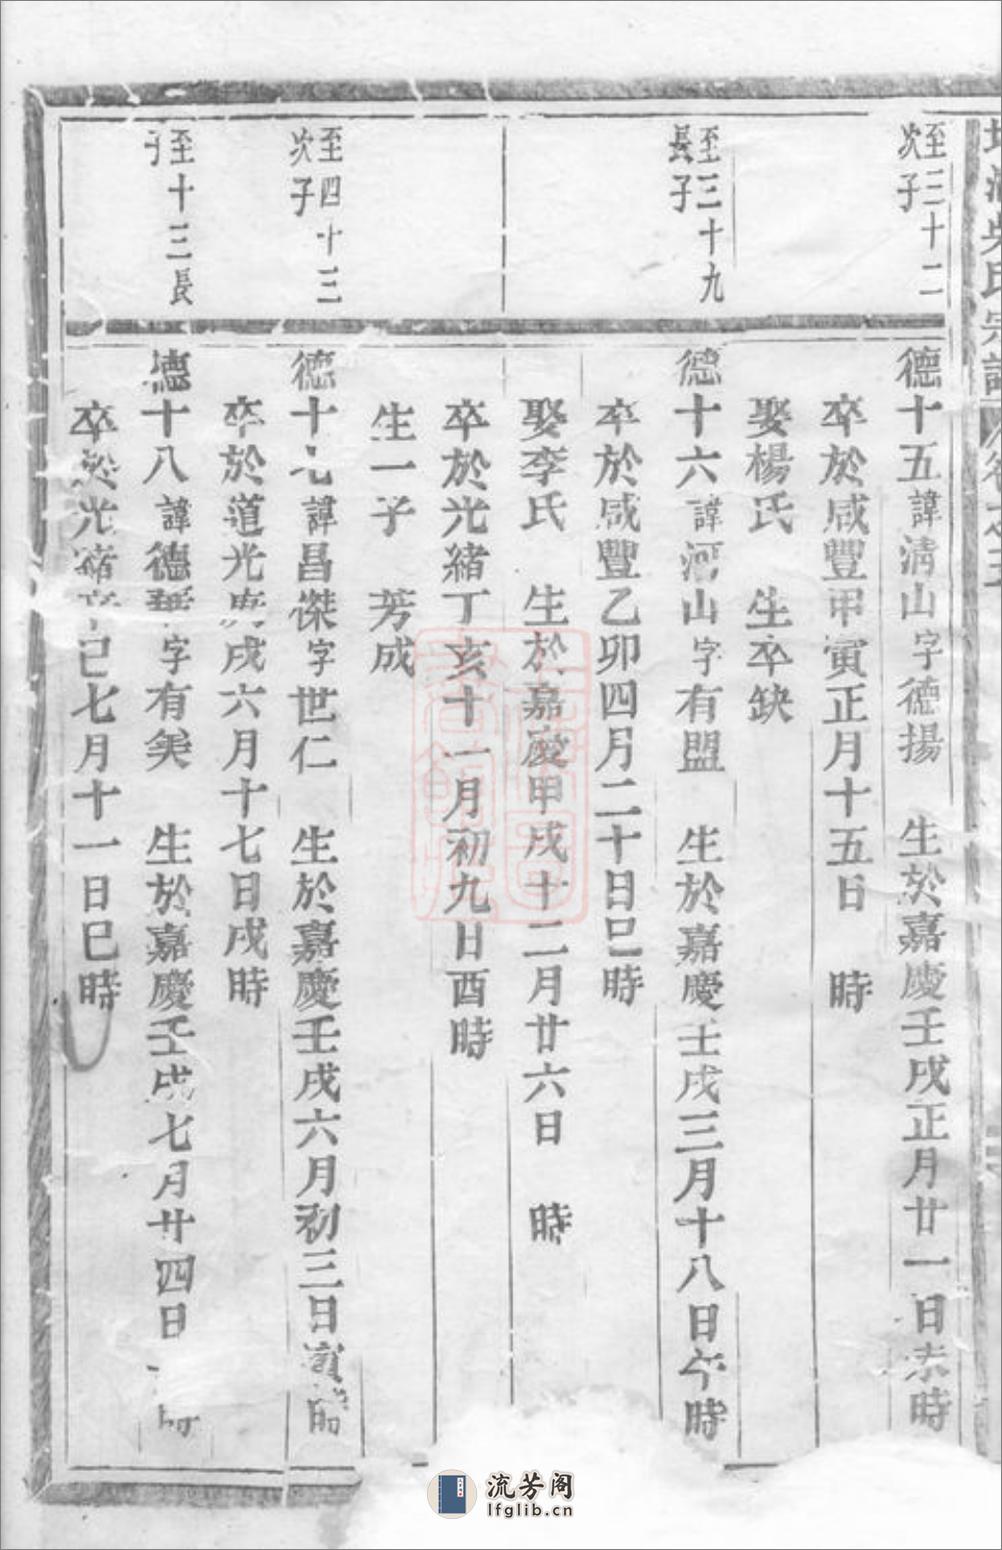 吳氏宗譜
至三十二
次子
德十五諱清山字德揚 生於嘉慶壬戌正月廿一日未時
卒於咸豐甲寅正月十五日 時
娶楊氏 生卒缺
至三十九
長子
德十六諱河山字有盟 生於嘉慶壬戌三月十八日午時
卒於咸豐乙卯四月二十日巳時
娶李氏 生於嘉慶甲戌十二月廿六日 時
卒於光緒丁亥十一月初九日酉時
生一子 芳成
至四十三
次子
德十七諱昌傑字世仁 生於嘉慶壬戌六月初三日寅時
卒於道光庚戌六月十七日戌時
至十三長
子
德十八諱德字有 生於嘉慶壬戌七月廿四日 時
卒於光緒辛巳七月十一日巳時
流芳阁
lfglib.cn